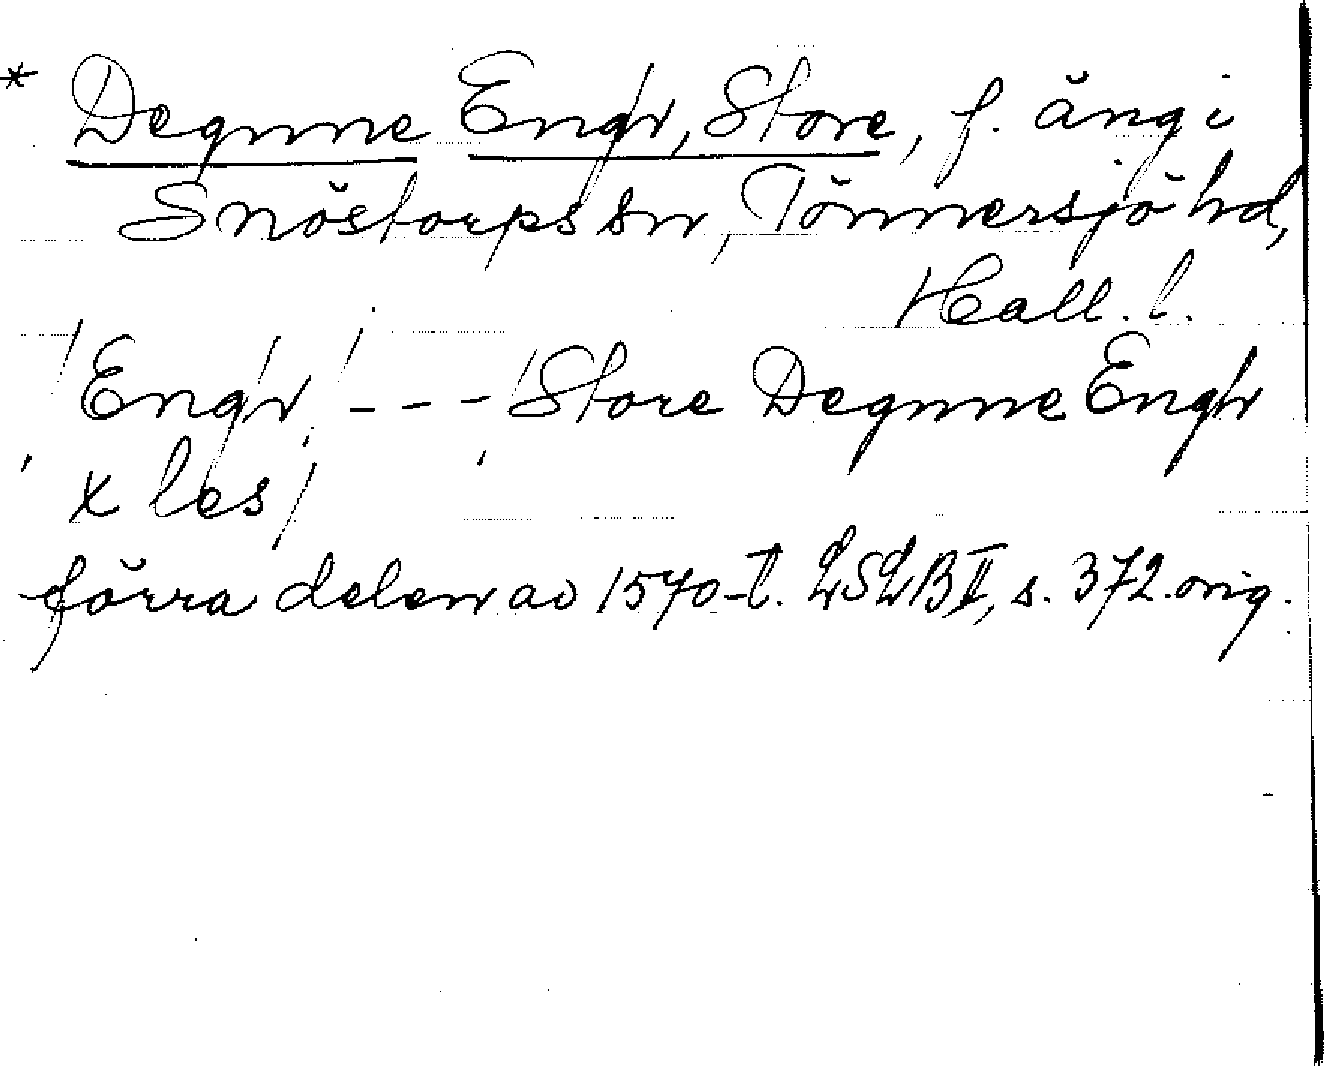 * Degnne Engh, Store, f. äng i
Snöstorps sn, Tönnersjö hd,
Hall. l.
/Engh/ --- /Store Degnne Engh
x les/
förra delen av 1570-t. LSLB II, s. 372. orig.